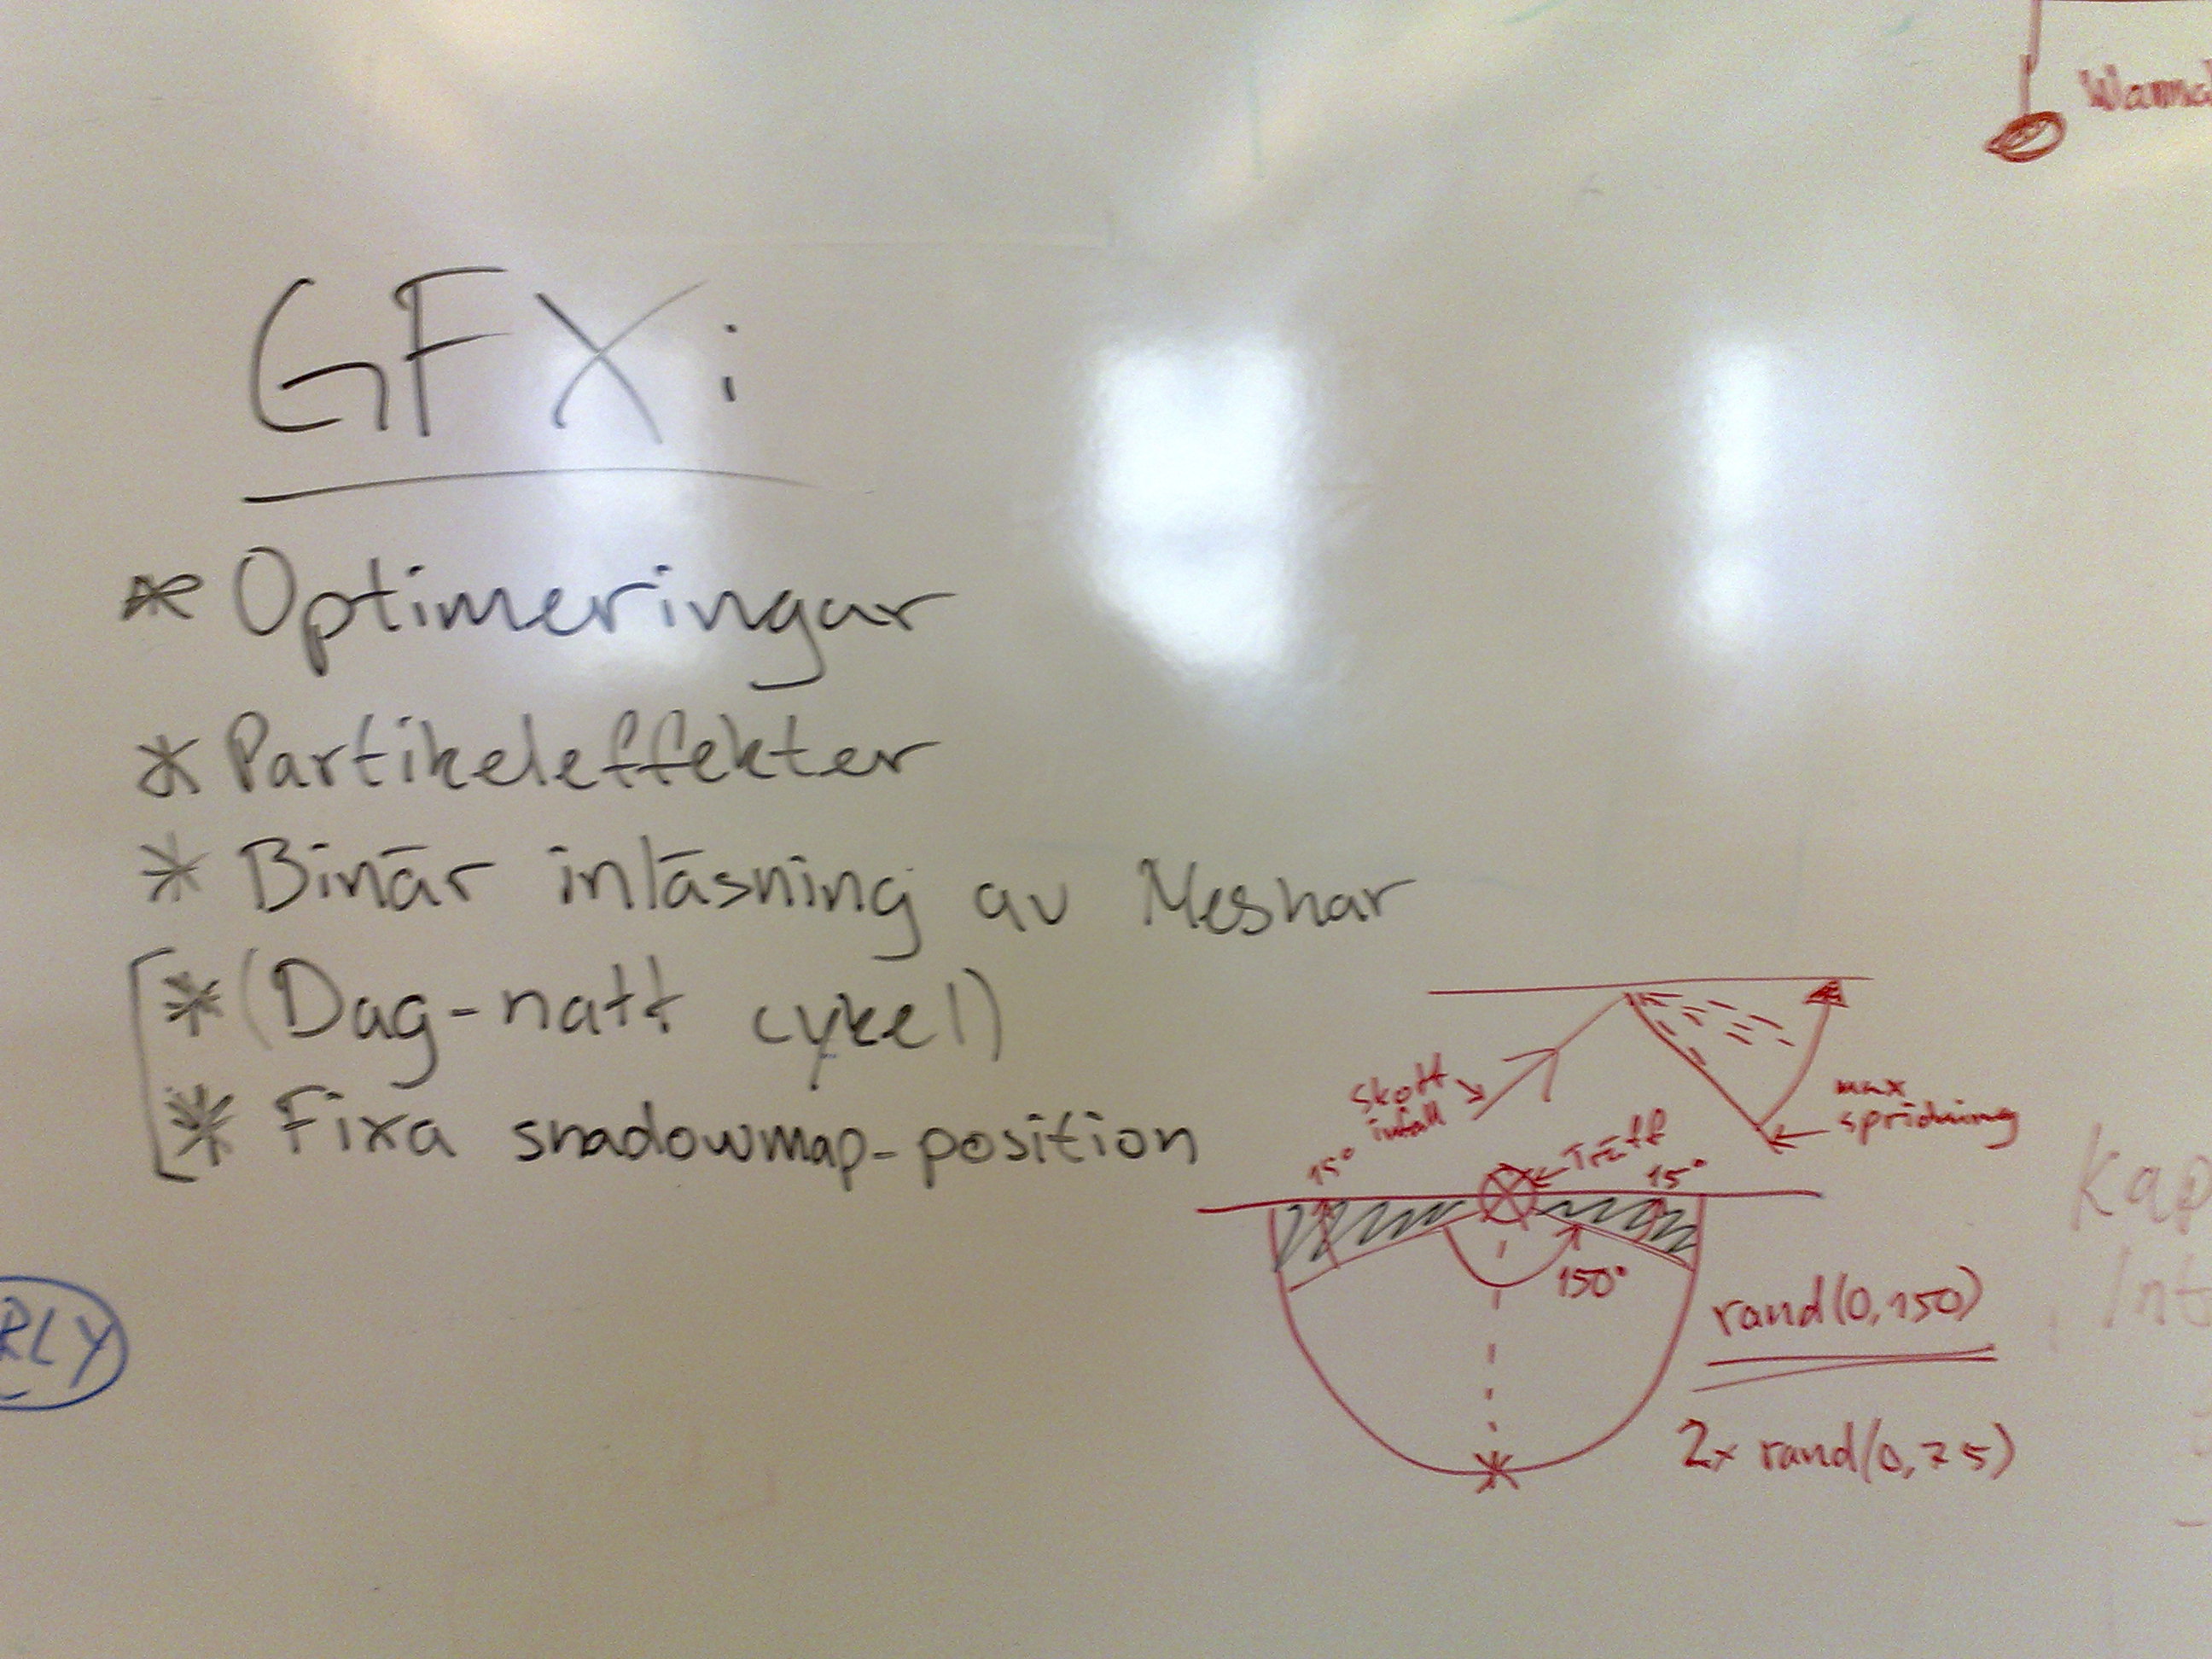 GFX:
* Optimeringar
* Partikeleffekter
* Binär inläsning av Meshar
* (Dag-natt cykel)
* Fixa shadowmap-position
skott
infall
max
spridning
15°
Träff
15°
150°
rand(0,150)
2x rand(0,75)
RLY
Kap
Int